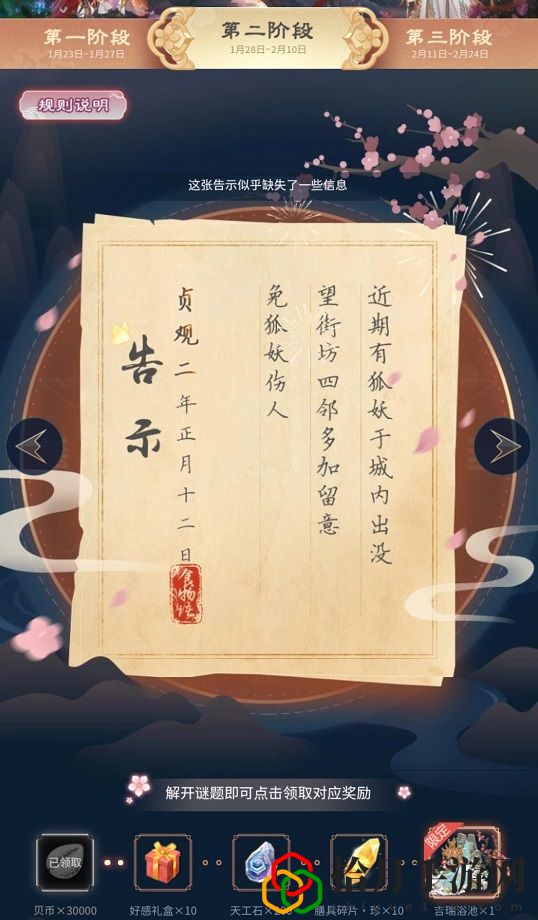 第一阶段
1月23日~1月27日
第二阶段
1月28日~2月10日
第三阶段
2月11日~2月24日
规则说明
这张告示似乎缺失了一些信息
近期有狐妖于城内出没
望街坊四邻多加留意
免狐妖伤人
贞观二年正月十二日
告示
食物语
解开谜题即可点击领取对应奖励
已领取
限定
贝币×30000
好感礼盒×10
天工石×200
膳具碎片·珍×10
吉瑞浴池×1